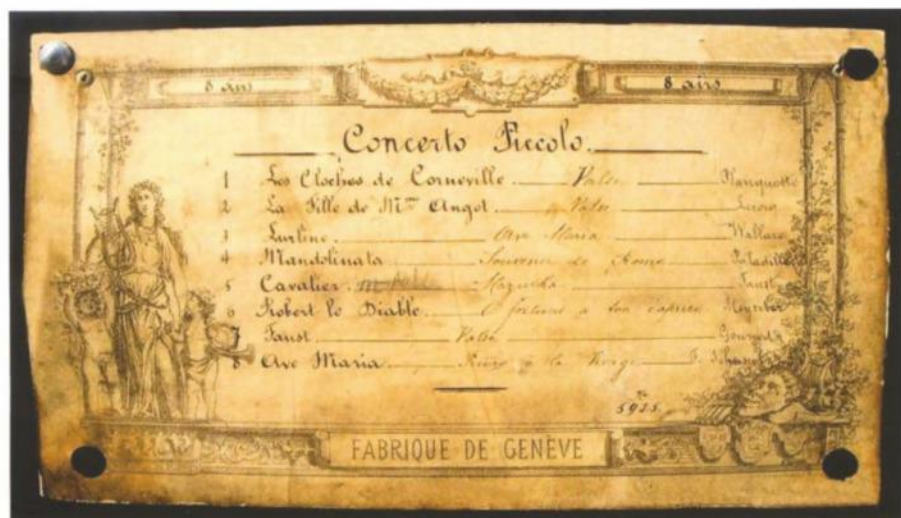 8 airs 8 airs
Concerto Piccolo.
1 Les Cloches de Corneville Valse Planquette
2 La Fille de Mme Angot Valse Lecocq
3 Lurline Ave Maria Wallace
4 Mandolinata Souvenir de Rome Paladilhe
5 Cavalier Mazurka Faust
6 Robert le Diable O fortune a ton caprice Meyerber
Faust Valse Gounod
8 Ave Maria Prière à la Vierge F. Schubert
No 5925
FABRIQUE DE GENÈVE